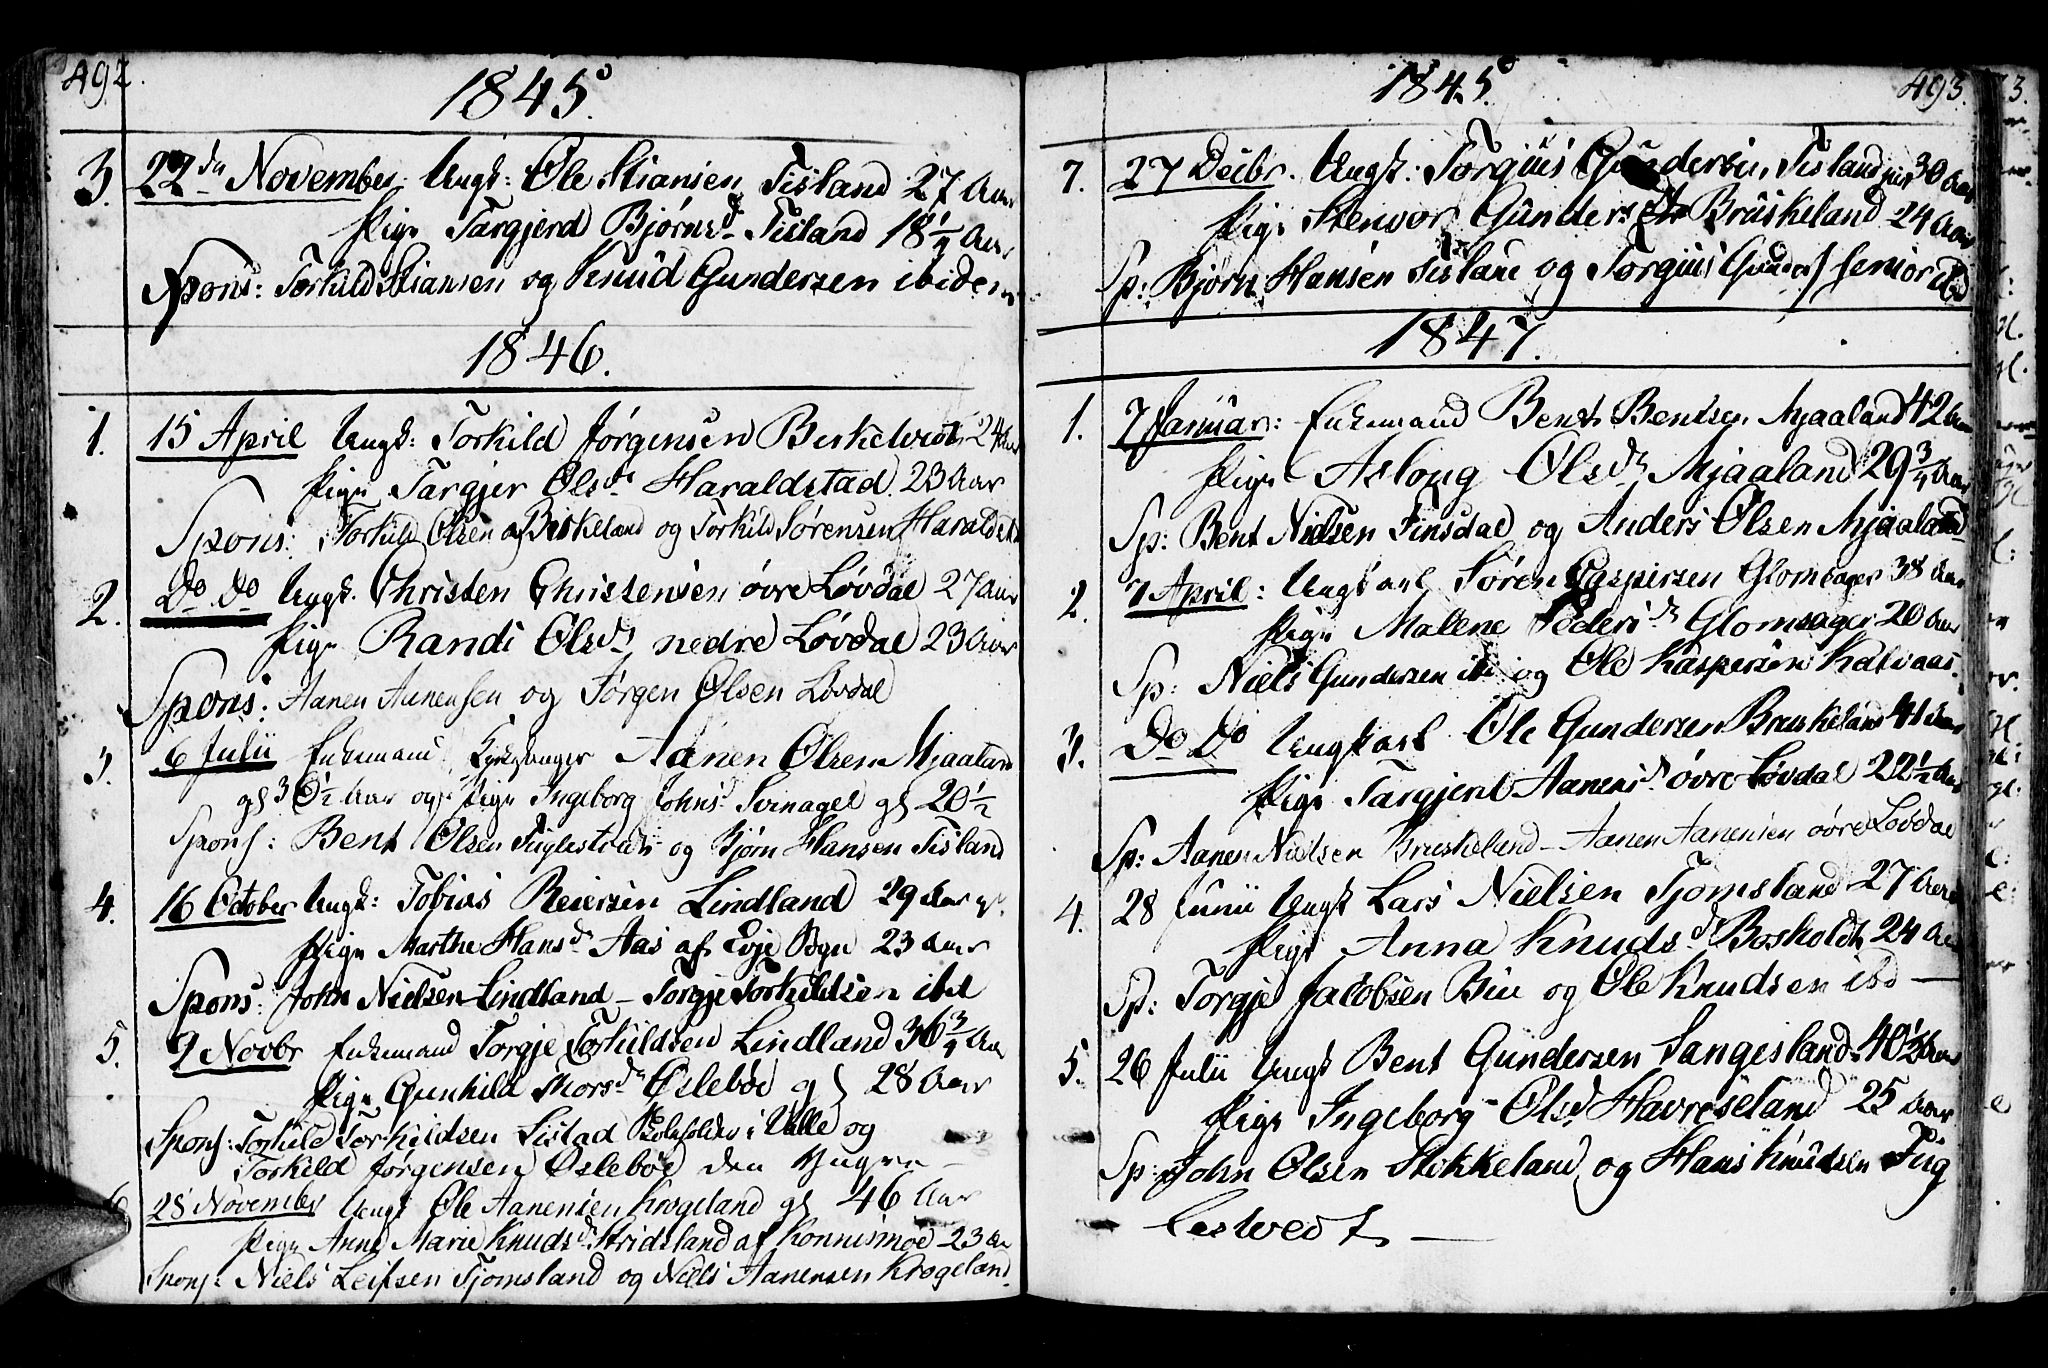 492.
1845.
3. 22de November. Ungk: Ole Stiansen Tisland 27 Aar
Pige Targjerd Bjørnsd. Tisland 18 1/4 Aar
Spons: Torkild Stiansen og Knud Gundersen ibidem
1846.
1. 15 April Ungk: Torkild Jørgensen Birkelvedt 24 Aar
Pige Targjer Olsdr Haraldstad. 23 Aar
Spons: Torkild Olsen af Birkeland og Torkild Sørensen Haraldst
2. Do. Do Ungk. Christen Christensen øvre Løvdal 27 Aar
Pige Randi Olsdr nedre Løvdal 23 Aar
Spons: Aanen Aanensen og Jørgen Olsen Løvdal
3. 6 Julii Enkemand Aanen Olsen Mjaaland
gl 36 1/2 Aar og Pige Ingeborg Johnsd Svinagel gl 20 1/2
Spons: Bent Olsen Fuglestvedt og Bjørn Hansen Tisland
4. 16 October Ungk: Tobias Reiersen Lindland 29 Aar gl.
Pige Marthe Hansd Aas af Evje Sogn 23 Aar
Spons: John Nielsen Lindland – Torgje Torkildsen ibd
5. 9 Novbr Enkemand Torgje Torkildsen Lindland 36 3/4 Aar
Pige Gunhild Thorsdr Oslebøe gl 28 Aar
Spons: Torkild Torkildsen Sistad i Valle og
Torkild Jørgensen Oslebøe den Yngre –
6 28 November Ungk Ole Aanensen Krogeland gl 46 Aar
Pige Anne Marie Knudsd. Stridsland af Konnismoe 23 Aar
Spons: Niels Leifsen Tjomsland og Niels Aanensen Krogeland.
493.
1845.
7. 27 Decbr. Ungk: Torgius Gundersen, Tisland 30 Aar
Pige Stenvor Gundersdr Bruskeland 24 Aar
Sp: Bjørn Hansen Tisland og Torgius Gunders senior ibd
1847.
1. 7 Januar: Enkemand Bent Bentsen Mjaaland 42 Aar
Pige Asloug Olsdr Mjaaland 29 3/4 Aar
Sp: Bent Nielsen Finsdal og Anders Olsen Mjaaland
2. 7 April: Ungkarl Søren Caspersen Glomsager 38 Aar
Pige Malene Pedersdr Glomsager 20 Aar
Sp: Niels Gundersen ibd og Ole Kaspersen Kalvaas.
3. Do Do Ungkarl Ole Gundersen Bruskeland 41 Aar
Pige Targjerd Aanensd øvre Løvdal 22 1/2 Aar
Sp: Aanen Nielsen Bruskeland – Aanen Aanensen øvre Løvdal
4. 28 Junii Ungk Lars Nielsen Tjomsland 27 Aar
Pige Anna Knudsd Bosholdt 24 Aar
Sp: Torgje Jacobsen Bue og Ole Knudsen ibd –
5. 26 Julii Ungk Bent Gundersen Sangesland 40 1/2 Aar
Pige Ingeborg Olsd Havreseland 25 Aar
Sp: John Olsen Stikkeland og Hans Knudsen Fug
lestvedt –